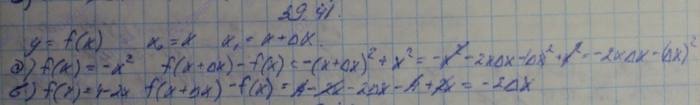 39.41.
y = f(x) x₀ = x x₁ = x + Δx.
а) f(x) = -x² f(x+Δx) - f(x) = -(x+Δx)² + x² = -x² - 2xΔx - (Δx)² + x² = -2xΔx - (Δx)²
б) f(x) = 1-2x f(x+Δx) - f(x) = 1 - 2x - 2Δx - 1 + 2x = -2Δx